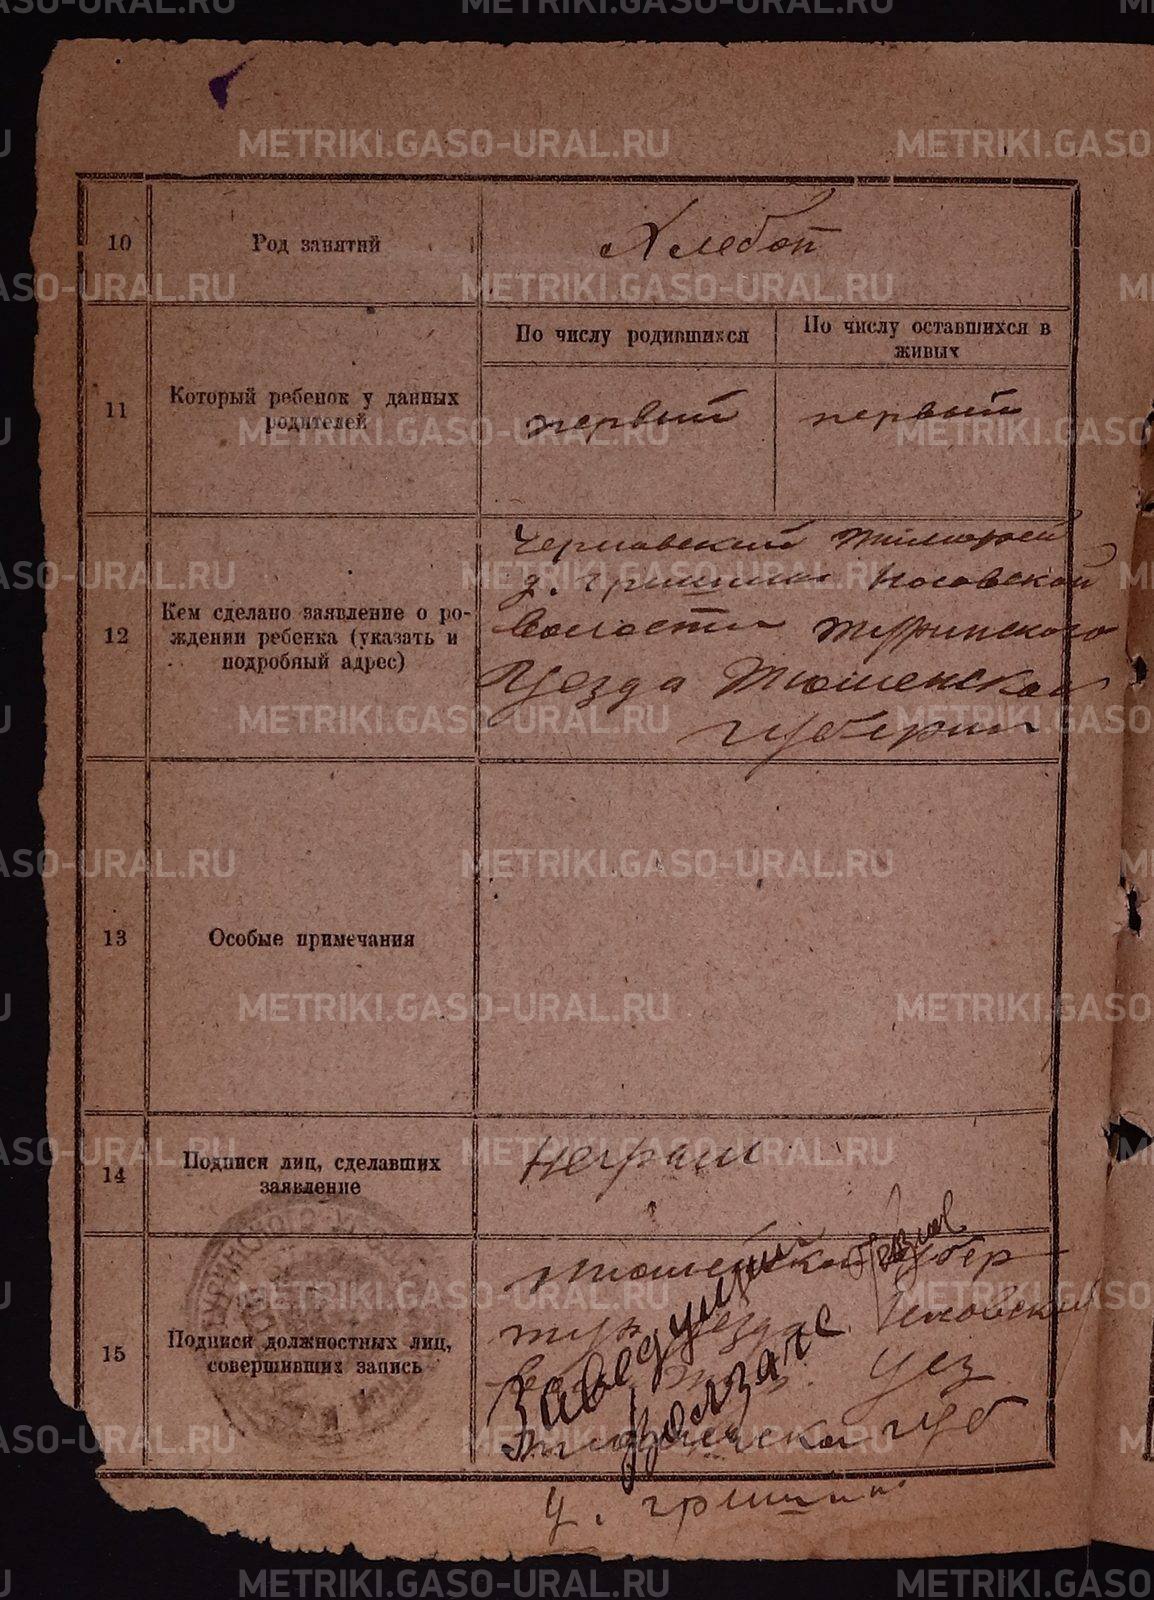 METRIKI.GASO-URAL.RU
10
Род занятий
Хлебоп
11
Который ребенок у данных
родителей
По числу родившихся
первый
По числу оставшихся в
живых
первый
12
Кем сделано заявление о ро-
ждении ребенка (указать и
подробный адрес)
Чернавский Тимофей
д. Гришини Носовской
Волости Туринского
Уезда Тюменской
губернии
13
Особые примечания
14
Подписи лиц, сделавших
заявление
Неграм
15
Подписи должностных лиц,
совершивших запись
Тюменской губер
уезда
уез
губ
Заведующий
Волзагс
д. Гришини